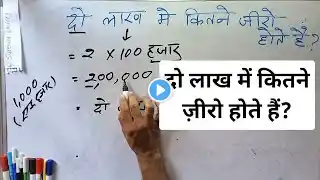 दो लाख मे कितने जीरो होते हैं?
= 2 × 100 हजार
= 200,000
= दो
1,000
(एक हजार)
दो लाख में कितने
ज़ीरो होते हैं?